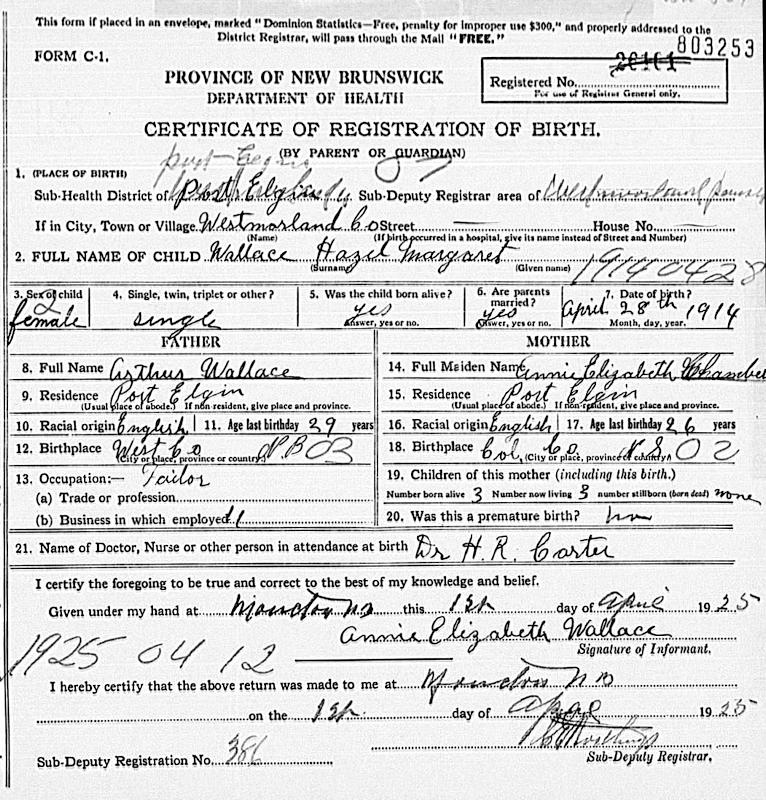 This form if placed in an envelope, marked "Dominion Statistics—Free, penalty for improper use $300," and properly addressed to the
District Registrar, will pass through the Mail "FREE."
803253
FORM C-1.
20101
PROVINCE OF NEW BRUNSWICK
Registered No.
DEPARTMENT OF HEALTH
For use of Registrar General only.
CERTIFICATE OF REGISTRATION OF BIRTH.
(BY PARENT OR GUARDIAN)
1. (PLACE OF BIRTH)
Sub-Health District of Port Elgin Sub-Deputy Registrar area of
If in City, Town or Village Westmorland Co Street House No.
(Name) (If birth occurred in a hospital, give its name instead of Street and Number)
2. FULL NAME OF CHILD Wallace Hazel Margaret
(Surname) (Given name) 19140428
3. Sex of child 4. Single, twin, triplet or other? 5. Was the child born alive? 6. Are parents married? 7. Date of birth?
2
female single yes yes April 28th 1914
Answer, yes or no. Answer, yes or no. Month, day, year.
FATHER
8. Full Name Arthur Wallace
9. Residence Port Elgin
(Usual place of abode.) If non-resident, give place and province.
10. Racial origin English 11. Age last birthday 29 years
12. Birthplace West Co N.B 03
(City or place, province or country)
13. Occupation:— Tailor
(a) Trade or profession
(b) Business in which employed 11
MOTHER
14. Full Maiden Name Annie Elizabeth Chamber
15. Residence Port Elgin
(Usual place of abode.) If non-resident, give place and province.
16. Racial origin English 17. Age last birthday 26 years
18. Birthplace Col. Co N S 02
(City or place, province or country)
19. Children of this mother (including this birth.)
Number born alive 3 Number now living 3 number stillborn (born dead) none
20. Was this a premature birth? no
21. Name of Doctor, Nurse or other person in attendance at birth Dr H. R. Carter
I certify the foregoing to be true and correct to the best of my knowledge and belief.
Given under my hand at Moncton NB this 12th day of April 1925
Annie Elizabeth Wallace
Signature of Informant.
1925 04 12
I hereby certify that the above return was made to me at Moncton N B
on the 12th day of April 1925
Sub-Deputy Registration No. 386
Sub-Deputy Registrar.